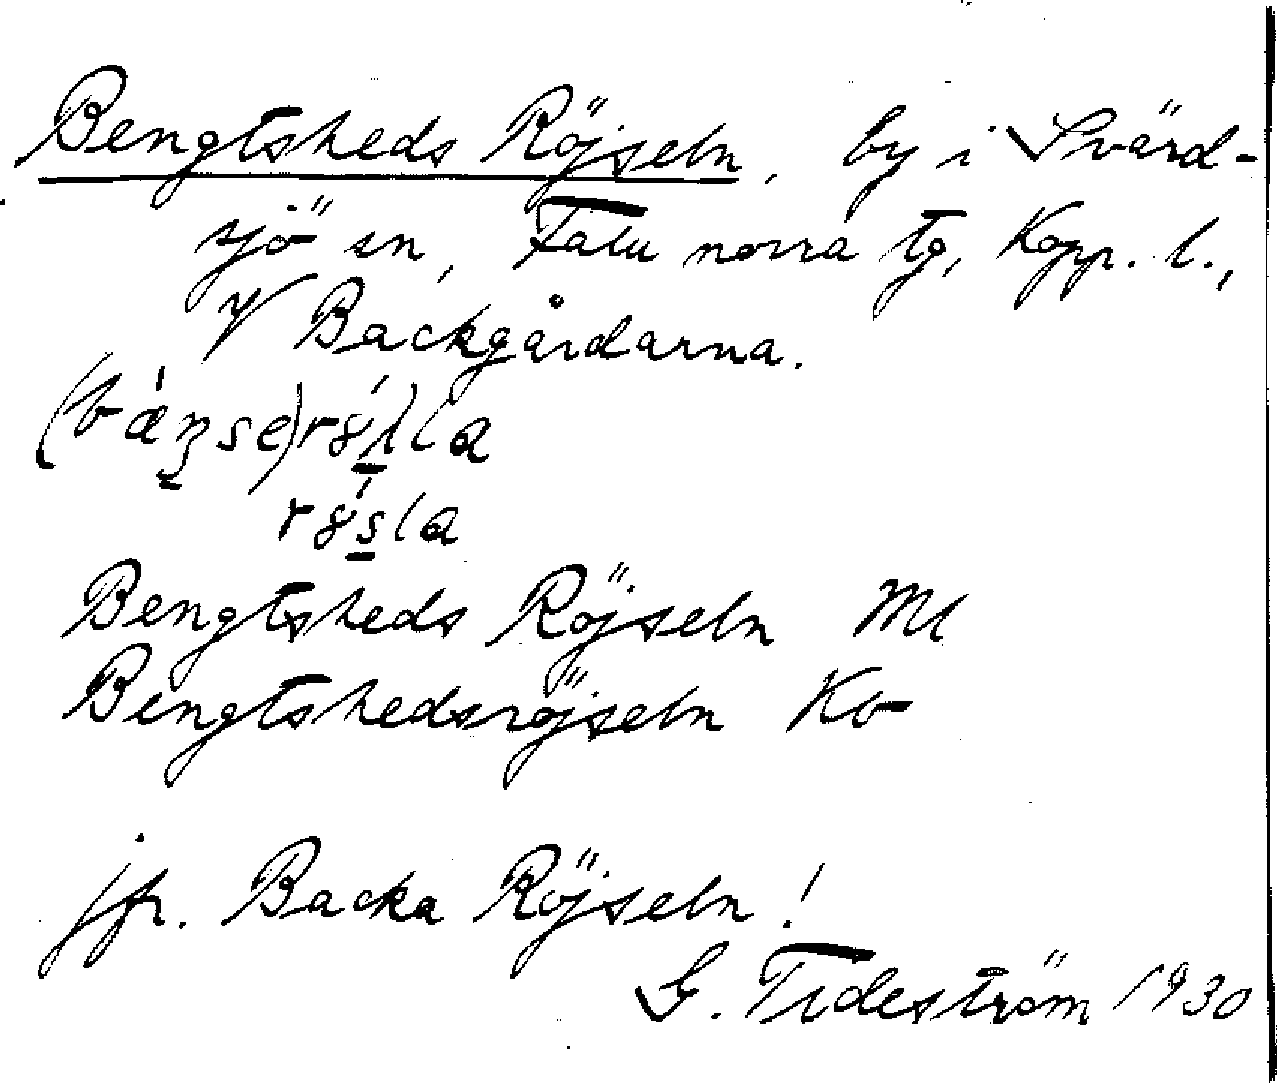 Bengtsheds Röjseln, by i Svärd-
sjö sn, Falu norra tg, Kopp. l.,
V Backgårdarna.
Bengtsheds Röjseln Ml
Bengtshedsröjseln Ko
jfr. Backa Röjseln!
G. Tideström 1930